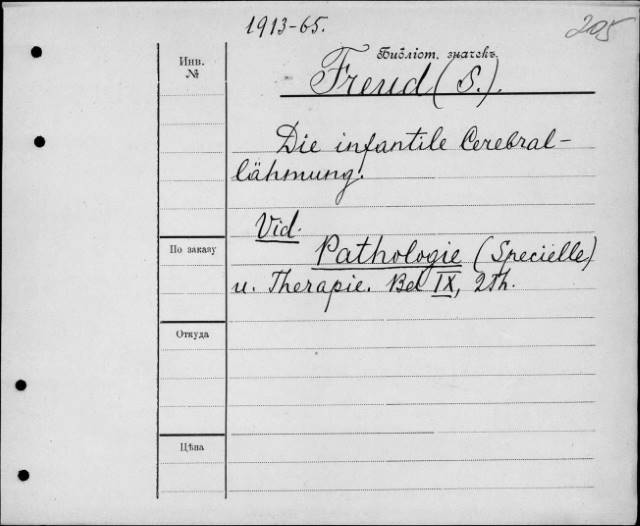 1913-65.
205
Инв. №
Библіот. значекъ
Freud (S.).
Die infantile Cerebral-
lähmung.
Vid.
По заказу
Pathologie (Specielle)
u. Therapie. Bd IX, 2Th.
Откуда
Цѣна